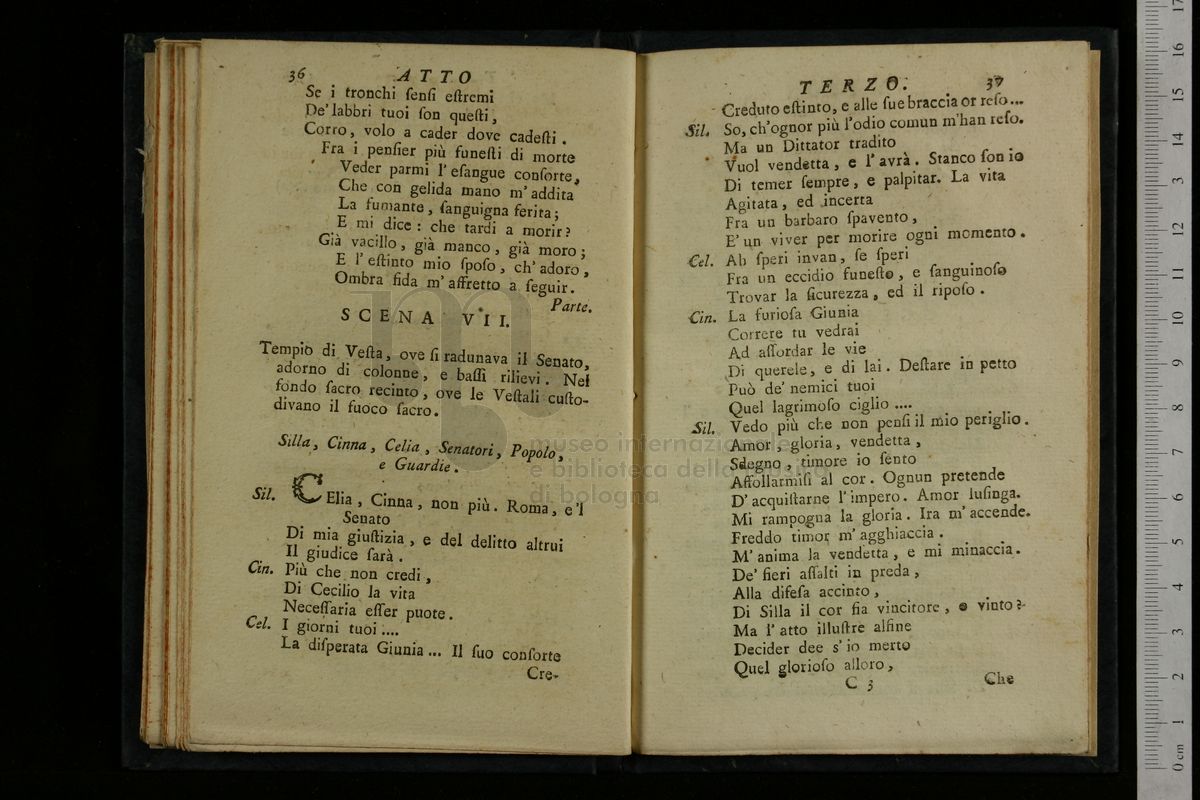 36 ATTO
Se i tronchi ſenſi eſtremi
De' labbri tuoi ſon queſti,
Corro, volo a cader dove cadeſti.
Fra i penſier più funeſti di morte
Veder parmi l' eſangue conſorte,
Che con gelida mano m' addita
La fumante, ſanguigna ferita;
E mi dice: che tardi a morir?
Già vacillo, già manco, già moro;
E l' eſtinto mio ſpoſo, ch' adoro,
Ombra fida m' affretto a ſeguir.
Parte.
SCENA VII.
Tempio di Veſta, ove ſi radunava il Senato,
adorno di colonne, e baſſi rilievi. Nel
fondo ſacro recinto, ove le Veſtali cuſto-
divano il fuoco ſacro.
Silla, Cinna, Celia, Senatori, Popolo,
e Guardie.
Sil. CElia, Cinna, non più. Roma, e 'l
Senato
Di mia giuſtizia, e del delitto altrui
Il giudice ſarà.
Cin. Più che non credi,
Di Cecilio la vita
Neceſſaria eſſer puote.
Cel. I giorni tuoi....
La diſperata Giunia... Il ſuo conſorte
Cre-
TERZO. 37
Creduto eſtinto, e alle ſue braccia or reſo...
Sil. So, ch'ognor più l'odio comun m'han reſo.
Ma un Dittator tradito
Vuol vendetta, e l'avrà. Stanco ſon io
Di temer ſempre, e palpitar. La vita
Agitata, ed incerta
Fra un barbaro ſpavento,
E' un viver per morire ogni momento.
Cel. Ah ſperi invan, ſe ſperi
Fra un eccidio funeſto, e ſanguinoſo
Trovar la ſicurezza, ed il ripoſo.
Cin. La furioſa Giunia
Correre tu vedrai
Ad aſſordar le vie
Di querele, e di lai. Deſtare in petto
Può de' nemici tuoi
Quel lagrimoſo ciglio ....
Sil. Vedo più che non penſi il mio periglio.
Amor, gloria, vendetta,
Sdegno, timore io ſento
Affollarmiſi al cor. Ognun pretende
D' acquiſtarne l' impero. Amor luſinga.
Mi rampogna la gloria. Ira m' accende.
Freddo timor m' agghiaccia.
M' anima la vendetta, e mi minaccia.
De' fieri aſſalti in preda,
Alla difeſa accinto,
Di Silla il cor fia vincitore, o vinto?
Ma l' atto illuſtre alfine
Decider dee s' io merto
Quel glorioſo alloro,
C 3 Che
museo internazionale
e biblioteca della musica
di bologna
0 cm 1 2 3 4 5 6 7 8 9 10 11 12 13 14 15 16 17